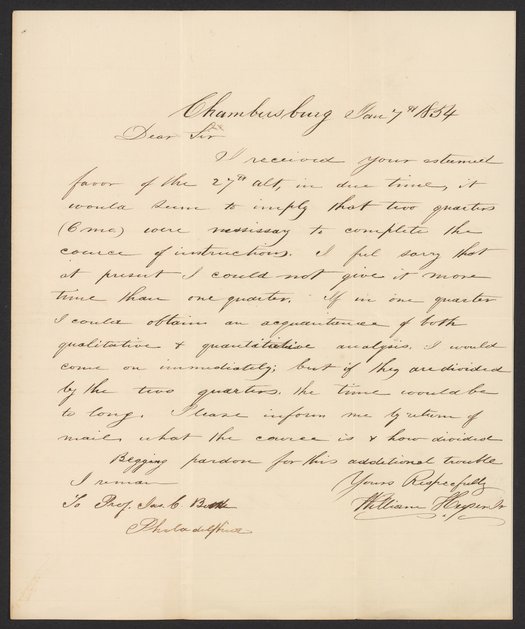 Chambersburg Jan 7th 1854
Dear Sir
I received your esteemed
favor of the 27th ult, in due time, it
would seem to imply that two quarters
(6 mo) were nessissay to complete the
cource of instructions. I feel sorry that
at present I could not give it more
time than one quarter. If in one quarter
I could obtain an acquantance of both
qualitative & quantitative analysis. I would
come on immediately; but if they are divided
by the two quarters. the time would be
to long. Please inform me by return of
mail what the cource is & how divided
Begging pardon for this additional trouble
I reman Yours Respecfully
To Prof. Jas C. Booth William Heyser Jr
Philadelphia